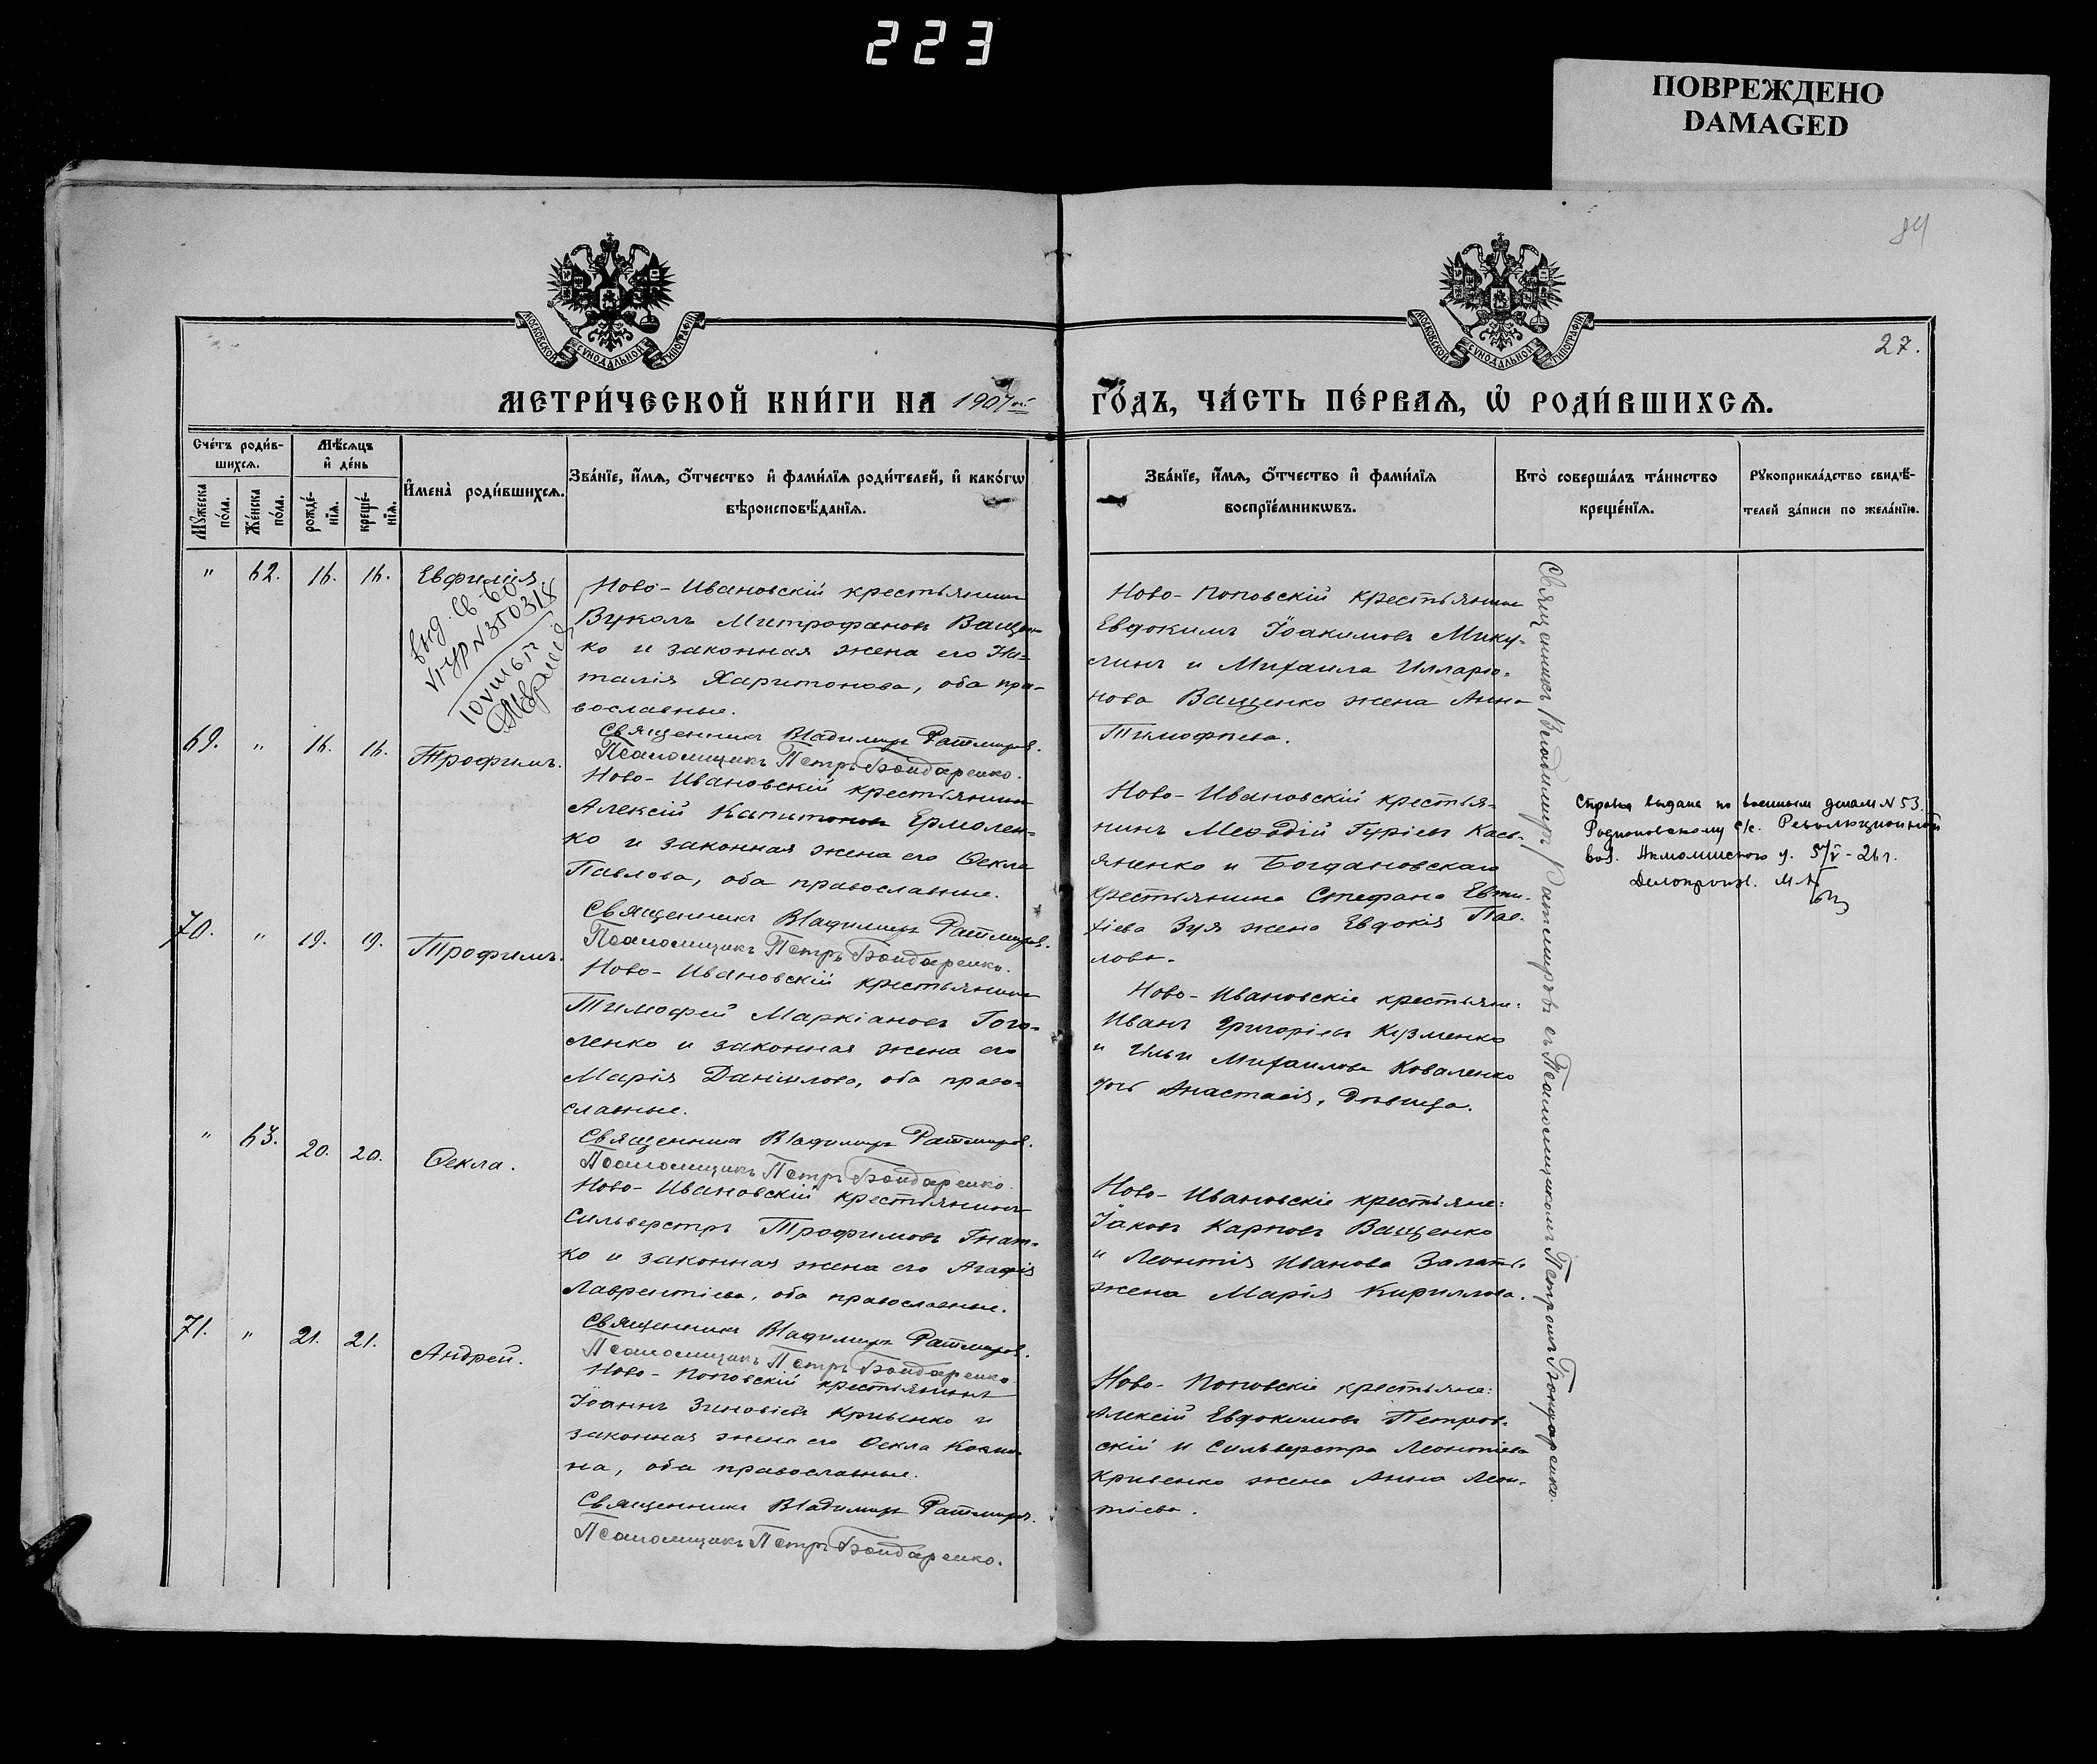 223
ПОВРЕЖДЕНО
DAMAGED
84
27.
МОСКОВСКОЙ СѴНОДАЛЬНОЙ ТИПОГРАФІИ
МОСКОВСКОЙ СѴНОДАЛЬНОЙ ТИПОГРАФІИ
МЕТРИ́ЧЕСКОЙ КНИ́ГИ НА 1907 ой
ГО́ДЪ, ЧА́СТЬ ПЕ́РВАѦ, Ѡ РОДИ́ВШИХСѦ.
Сче́тъ роди́в-
шихсѧ.
Мꙋжеска по́ла.
Же́нска по́ла.
Мѣ́сѧцъ
и҆ де́нь
рожде́-
нїѧ.
креще́-
нїѧ.
И҆мена̀ роди́вшихсѧ.
Зва́нїе, и҆́мѧ, ѻ҆́тчество и҆ фами́лїѧ роди́телей, и҆ како́гѡ
вѣроисповѣ́данїѧ.
Зва́нїе, и҆́мѧ, ѻ҆́тчество и҆ фами́лїѧ
воспрїе́мникѡвъ.
Кто̀ соверша́лъ та́инство
креще́нїѧ.
Рꙋкоприкла́дство свидѣ́-
телей за́писи по жела́нїю.
" 62. 16. 16. Евфимія.
выд. св во
VI-УР N350318
Ново-Ивановскій крестьянинъ
Вуколъ Митрофановъ Ващен-
ко и законная жена его На-
талія Харитонова, оба пра-
вославные.
Священникъ Владимиръ Ратмировъ.
Псаломщикъ Петръ Бондаренко.
Ново-Поповскій крестьянинъ
Евдокимъ Іоакимовъ Мику-
линъ и Михаила Илларіо-
нова Ващенко жена Анна
Тимофеева.
69. " 16. 16. Трофимъ.
Ново-Ивановскій крестьянинъ
Алексій Капитоновъ Ермолен-
ко и законная жена его Ѳекла
Павлова, оба православные.
Священникъ Владимиръ Ратмировъ.
Псаломщикъ Петръ Бондаренко.
Ново-Ивановскій крестья-
нинъ Меѳодій Гуріевъ Кась-
яненко и Богдановскаго
крестьянина Стефана Евти-
хіева Зуя жена Евдокія Пав-
лова.
Справка выдана по военным делам N 53.
Родионовскому с/с. Революционной
вол. Акмолинского у. 5/V-26 г.
Делопроизв.
70. " 19. 19. Трофимъ.
Ново-Ивановскій крестьянинъ
Тимофей Маркіановъ Гого-
ленко и законная жена его
Марія Даніилова, оба право-
славные.
Священникъ Владимиръ Ратмировъ.
Псаломщикъ Петръ Бондаренко.
Ново-Ивановскіе крестьяне:
Иванъ Григоріевъ Кузменко
и Ильи Михаилова Коваленко
дочь Анастасія, дѣвица.
" 63. 20. 20. Ѳекла.
Ново-Ивановскій крестьянинъ
Сильверстръ Трофимовъ Гнат-
ко и законная жена его Агафія
Лаврентіева, оба православные.
Священникъ Владимиръ Ратмировъ.
Псаломщикъ Петръ Бондаренко.
Ново-Ивановскіе крестьяне:
Іаковъ Карповъ Ващенко
и Леонтія Иванова
жена Марія Кириллова.
71. " 21. 21. Андрей.
Ново-Поповскій крестьянинъ
Іоаннъ Зиновіевъ Кривенко и
законная жена его Ѳекла Козми-
на, оба православные.
Священникъ Владимиръ Ратмировъ.
Псаломщикъ Петръ Бондаренко.
Ново-Поповскіе крестьяне:
Алексій Евдокимовъ Петров-
скій и Сильверстра Леонтіева
Кривенко жена Анна Леон-
тіева.
Священникъ Владимиръ Ратмировъ съ Псаломщикомъ Петромъ Бондаренко.